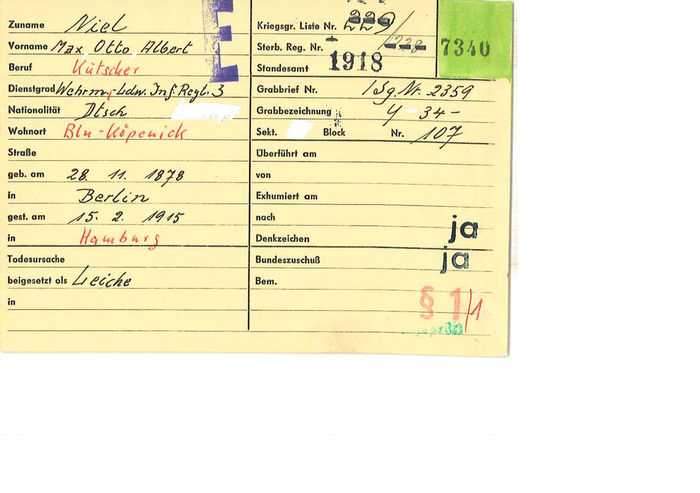 Zuname Niel
Vorname Max Otto Albert
Beruf Kutscher
Dienstgrad Wehrm. Ldw. Inf. Regt. 3
Nationalität Dtsch
Wohnort Bln-Köpenick
Straße
geb. am 28. 11. 1878
in Berlin
gest. am 15. 2. 1915
in Hamburg
Todesursache
beigesetzt als Leiche
in
Kriegsgr. Liste Nr. 229/
Sterb. Reg. Nr. 228
7340
Standesamt 1918
Grabbrief Nr. Nr. 2359
Grabbezeichnung Y - 34 -
Sekt. Block Nr. 107
Überführt am
von
Exhumiert am
nach
Denkzeichen ja
Bundeszuschuß ja
Bem.
§ 1/1